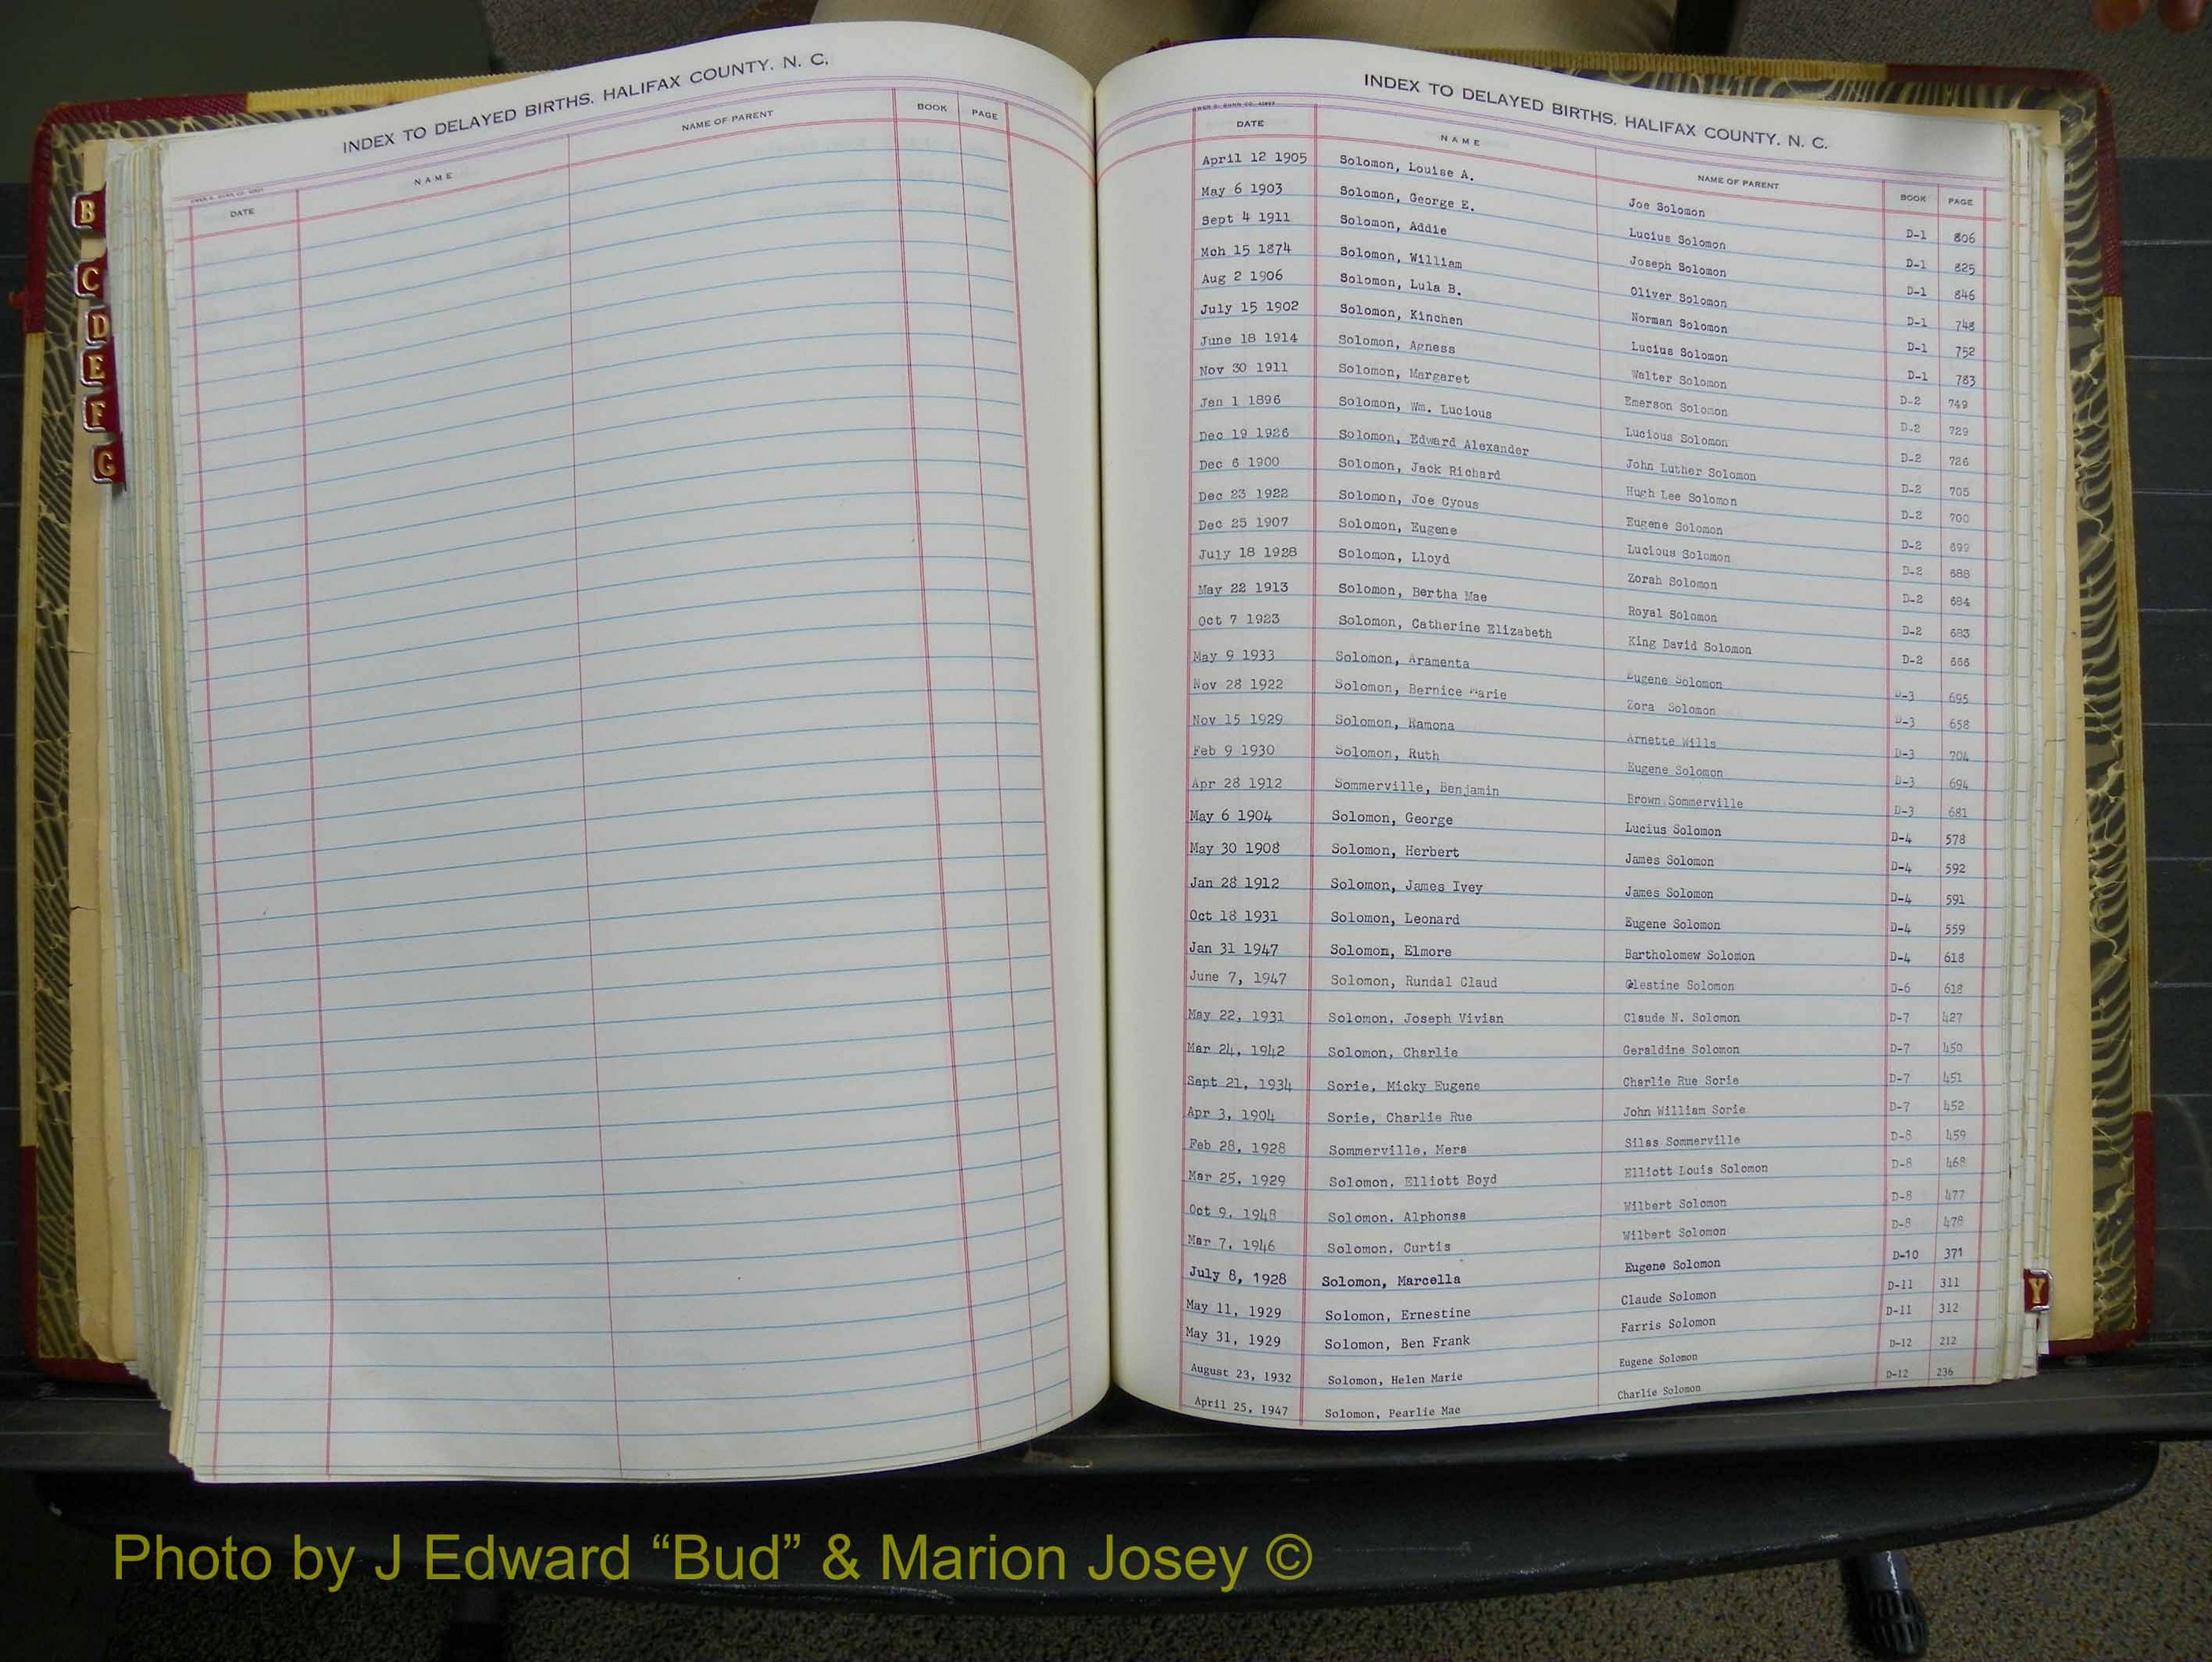 INDEX TO DELAYED BIRTHS. HALIFAX COUNTY. N. C.
DATE NAME NAME OF PARENT BOOK PAGE
B
C
D
E
F
G
INDEX TO DELAYED BIRTHS. HALIFAX COUNTY. N. C.
DATE NAME NAME OF PARENT BOOK PAGE
April 12 1905 Solomon, Louise A. Joe Solomon D-1 806
May 6 1903 Solomon, George E. Lucius Solomon D-1 825
Sept 4 1911 Solomon, Addie Joseph Solomon D-1 846
Mch 15 1874 Solomon, William Oliver Solomon D-1 748
Aug 2 1906 Solomon, Lula B. Norman Solomon D-1 752
July 15 1902 Solomon, Kinchen Lucius Solomon D-1 783
June 18 1914 Solomon, Agness Walter Solomon D-2 749
Nov 30 1911 Solomon, Margaret Emerson Solomon D-2 729
Jan 1 1896 Solomon, Wm. Lucious Lucious Solomon D-2 726
Dec 19 1926 Solomon, Edward Alexander John Luther Solomon D-2 705
Dec 6 1900 Solomon, Jack Richard Hugh Lee Solomon D-2 700
Dec 23 1922 Solomon, Joe Cyous Eugene Solomon D-2 699
Dec 25 1907 Solomon, Eugene Lucious Solomon D-2 688
July 18 1928 Solomon, Lloyd Zorah Solomon D-2 684
May 22 1913 Solomon, Bertha Mae Royal Solomon D-2 683
Oct 7 1923 Solomon, Catherine Elizabeth King David Solomon D-2 666
May 9 1933 Solomon, Aramenta Eugene Solomon D-3 695
Nov 28 1922 Solomon, Bernice Marie Zora Solomon D-3 658
Nov 15 1929 Solomon, Ramona Arnette Wills D-3 704
Feb 9 1930 Solomon, Ruth Eugene Solomon D-3 694
Apr 28 1912 Sommerville, Benjamin Brown Sommerville D-3 681
May 6 1904 Solomon, George Lucius Solomon D-4 578
May 30 1908 Solomon, Herbert James Solomon D-4 592
Jan 28 1912 Solomon, James Ivey James Solomon D-4 591
Oct 18 1931 Solomon, Leonard Eugene Solomon D-4 559
Jan 31 1947 Solomon, Elmore Bartholomew Solomon D-4 618
June 7, 1947 Solomon, Rundal Claud Clestine Solomon D-6 618
May 22, 1931 Solomon, Joseph Vivian Claude N. Solomon D-7 427
Mar 24, 1942 Solomon, Charlie Geraldine Solomon D-7 450
Sept 21, 1934 Sorie, Micky Eugene Charlie Rue Sorie D-7 451
Apr 3, 1904 Sorie, Charlie Rue John William Sorie D-7 452
Feb 28, 1928 Sommerville, Mera Silas Sommerville D-8 459
Mar 25, 1929 Solomon, Elliott Boyd Elliott Louis Solomon D-8 468
Oct 9, 1948 Solomon, Alphonsa Wilbert Solomon D-8 477
Mar 7, 1946 Solomon, Curtis Wilbert Solomon D-8 478
July 8, 1928 Solomon, Marcella Eugene Solomon D-10 371
May 11, 1929 Solomon, Ernestine Claude Solomon D-11 311
May 31, 1929 Solomon, Ben Frank Farris Solomon D-11 312
August 23, 1932 Solomon, Helen Marie Eugene Solomon D-12 212
April 25, 1947 Solomon, Pearlie Mae Charlie Solomon D-12 236
Y
Photo by J Edward “Bud” & Marion Josey ©